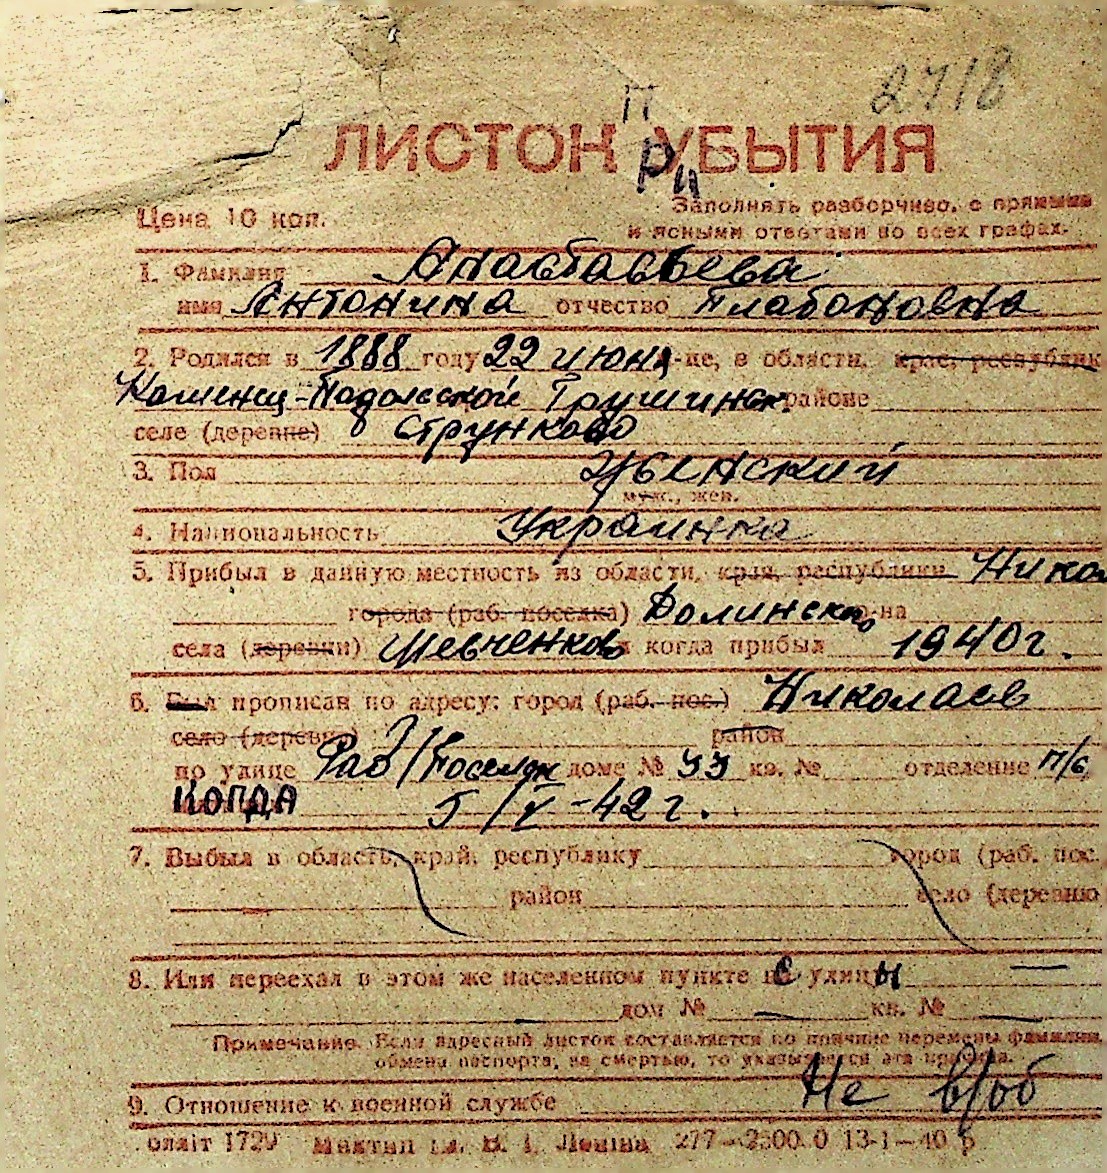 2718
П
ЛИСТОК УБЫТИЯ
Ри
Цена 10 коп.
Заполнять разборчиво, с прямыми
и ясными ответами во всех графах.
1. Фамилия Анастасьева
имя Антонина отчество Плабоновна
2. Родился в 1888 году 22 июня -це, в области, край, республик
Каменец-Подольской Грушинск районе
селе (деревне) Струнково
3. Пол Женский
муж., жен.
4. Национальность Украинка
5. Прибыл в данную местность из области, края, республики Никол
города (раб. поселка) Долинско р-на
села (деревни) Шевченково и когда прибыл 1940 г.
6. Был прописан по адресу: город (раб. пос.) Николаев
село (деревня) район
по улице Раб/Поселок доме № 33 кв. № отделение п/б
КОГДА 5/V-42 г.
7. Выбыл в область, край, республику город (раб. пос.
район село (деревню
8. Или переехал в этом же населенном пункте с улицы —
дом № — кв. № —
Примечание. Если адресный листок составляется по причине перемены фамилии,
обмена паспорта, за смертью, то указывается эта причина.
9. Отношение к военной службе Не в/об
олліт 1729 Миктип ім. В. І. Леніна 277—2500.0 13-1—40 р